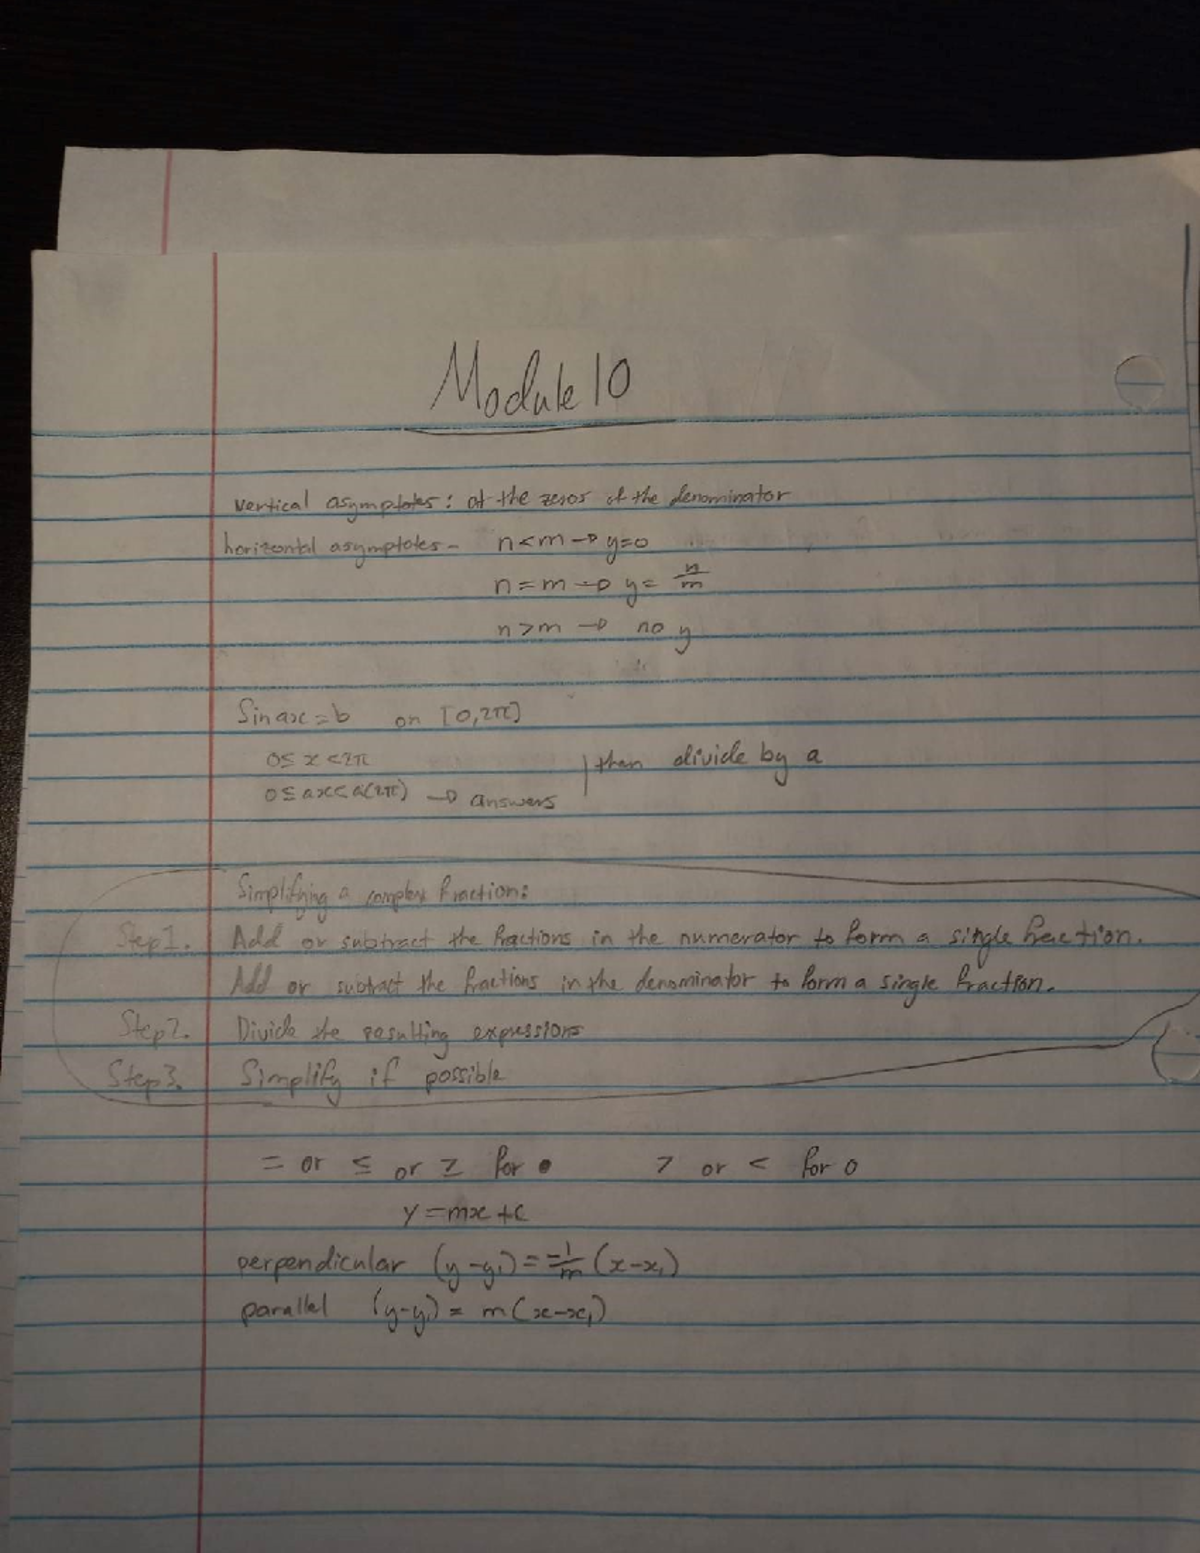 Module 10
vertical asymptotes: at the zeros of the denominator
horizontal asymptotes - n<m → y=0
n=m → y= n/m
n>m → no y
Sin ax=b on [0,2π]
0≤ x <2π
0≤ax<a(2π) → answers | then divide by a
Simplifying a complex fraction:
Step1. Add or subtract the fractions in the numerator to form a single fraction.
Add or subtract the fractions in the denominator to form a single fraction.
Step2. Divide the resulting expressions
Step3. Simplify if possible
= or ≤ or ≥ for ● > or < for o
y=mx+c
perpendicular (y-y₁)= -1/m (x-x₁)
parallel (y-y₁)= m(x-x₁)